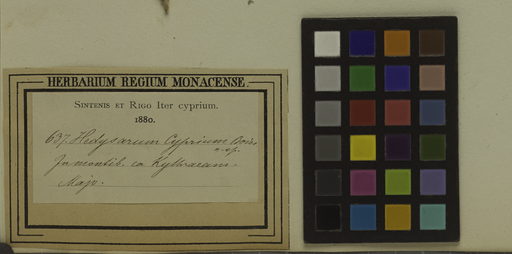 HERBARIUM REGIUM MONACENSE.
SINTENIS ET RIGO Iter cyprium.
1880.
637. Hedysarum Cyprium Boiss
n. sp.
In montib. ca Kythraeam.
Majo.